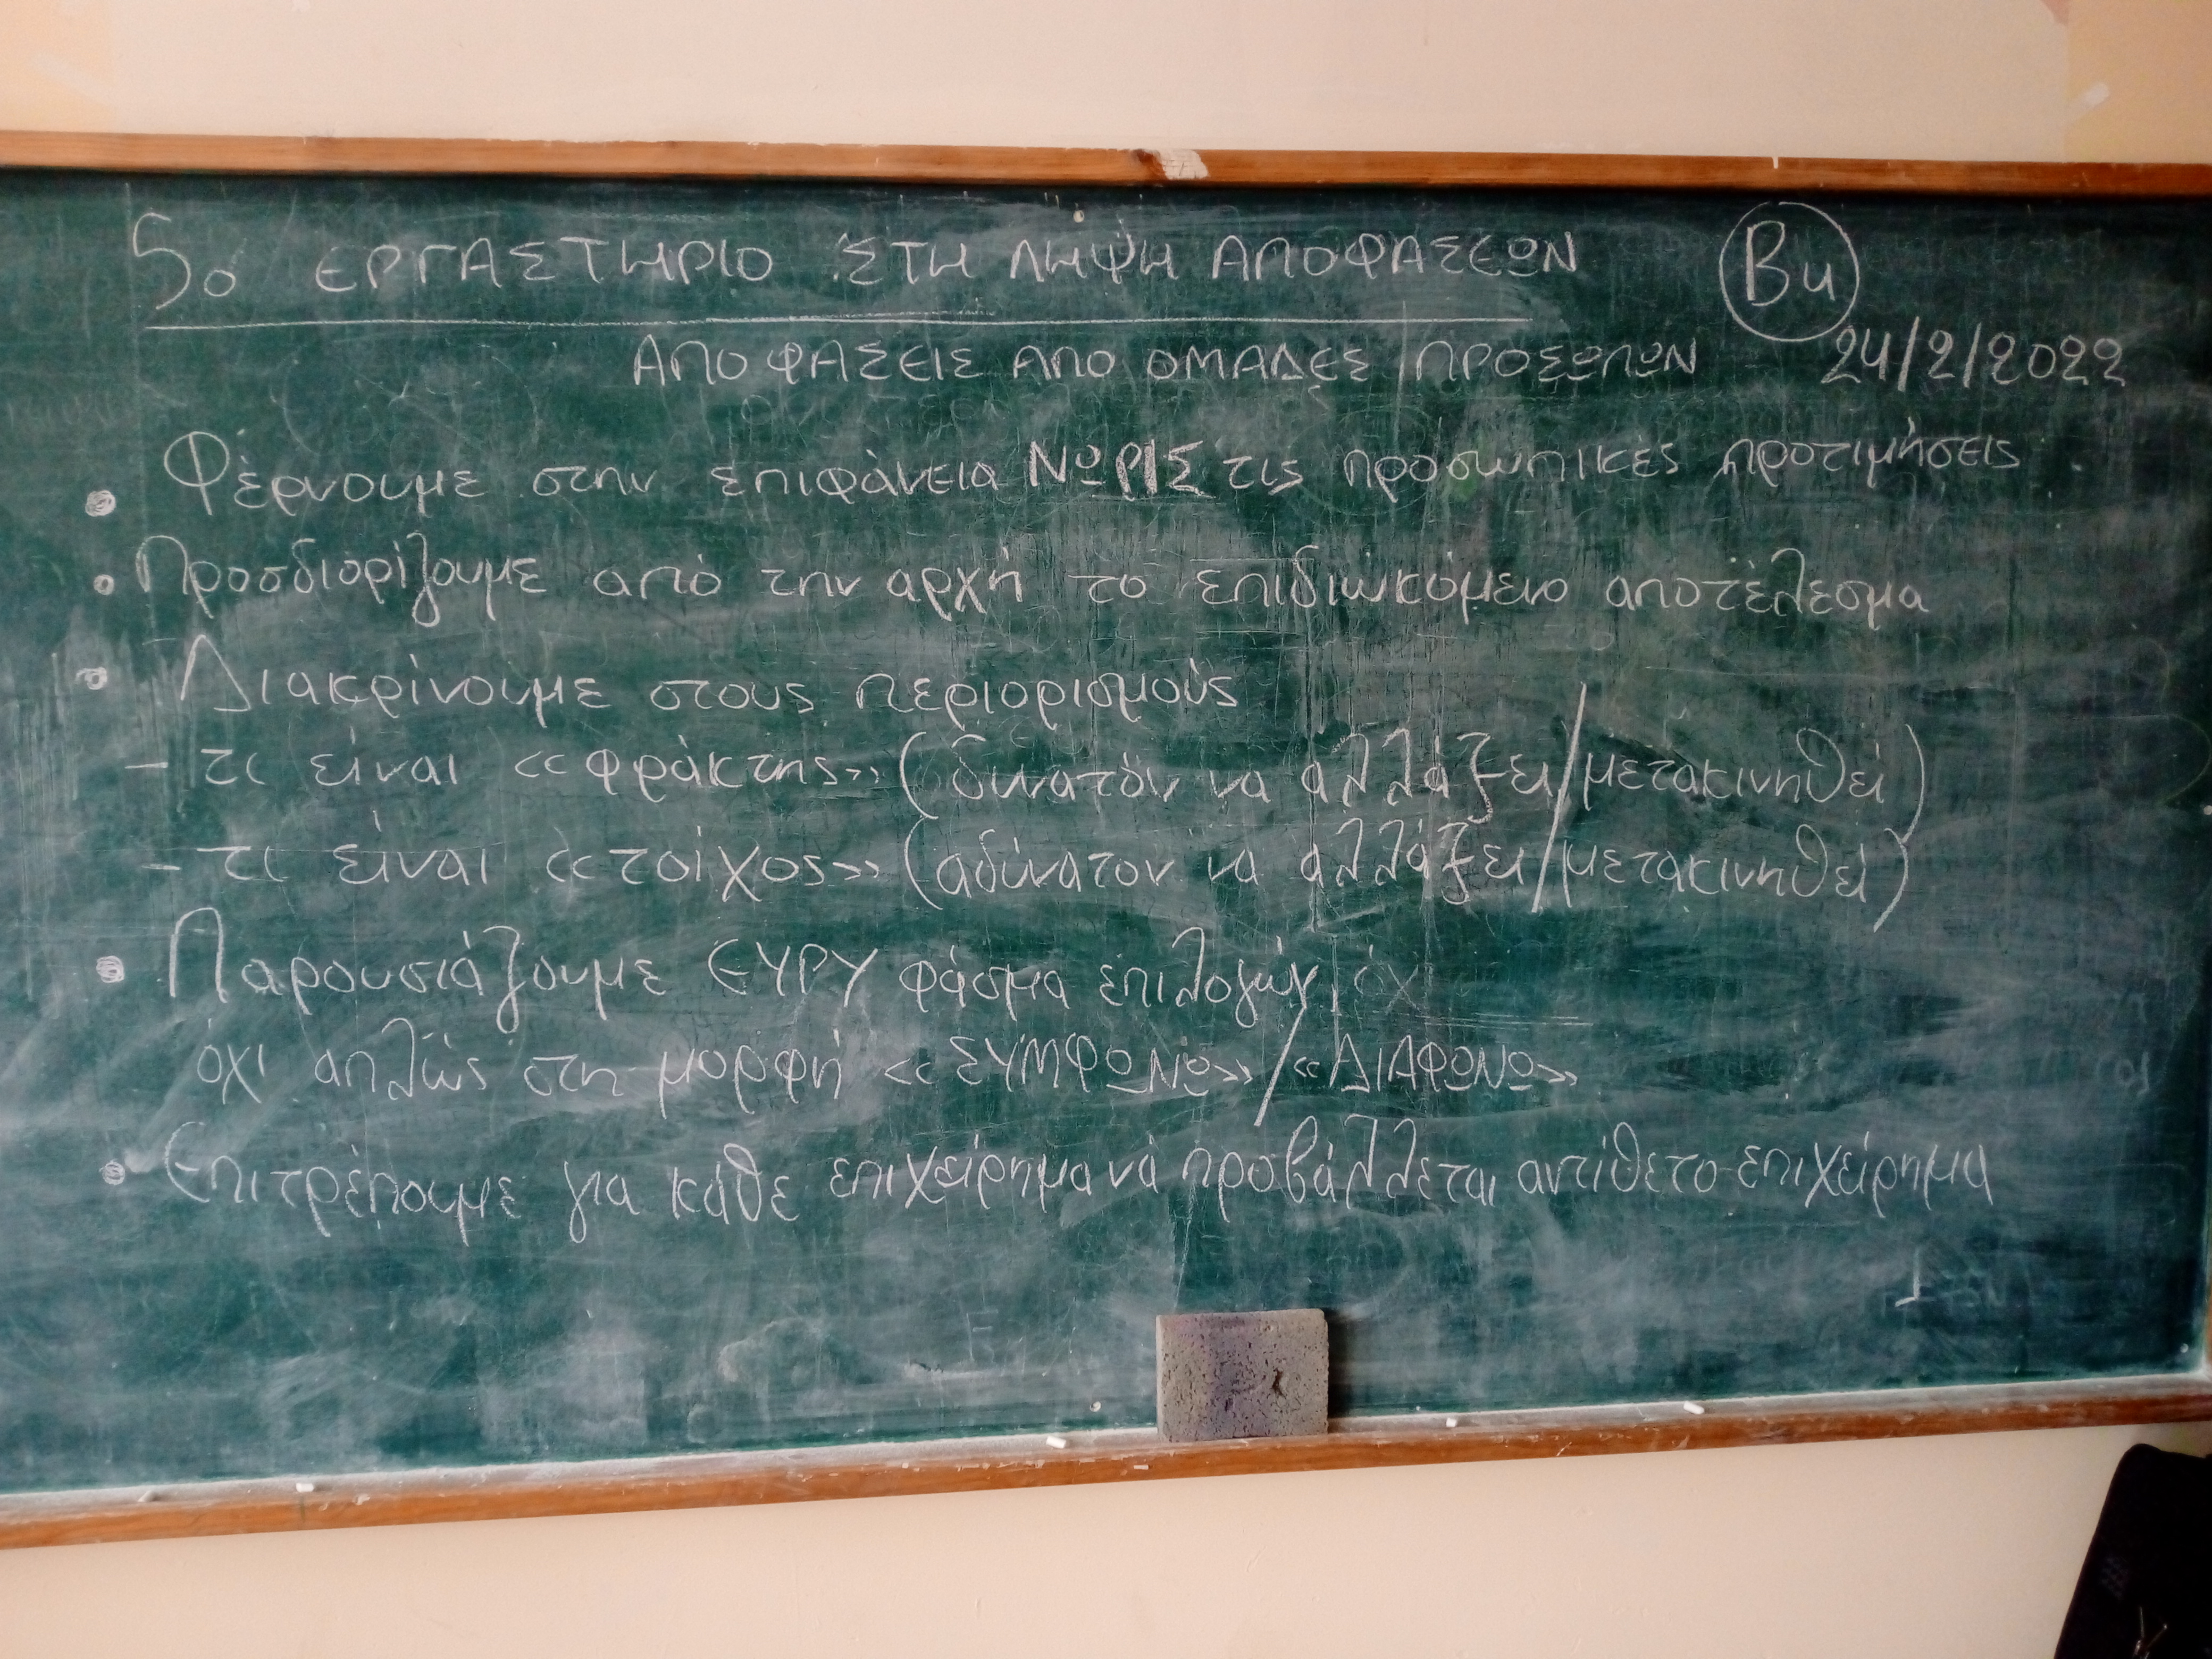 5ο ΕΡΓΑΣΤΗΡΙΟ ΣΤΗ ΛΗΨΗ ΑΠΟΦΑΣΕΩΝ Βη
ΑΠΟΦΑΣΕΙΣ ΑΠΟ ΟΜΑΔΕΣ ΠΡΟΣΩΠΩΝ 24/2/2022
• Φέρνουμε στην επιφάνεια ΝΩΡΙΣ τις προσωπικές προτιμήσεις
• Προσδιορίζουμε από την αρχή το επιδιωκόμενο αποτέλεσμα
• Διακρίνουμε στους περιορισμούς
- τι είναι «φράκτης» (δυνατόν να αλλάξει/μετακινηθεί)
- τι είναι «τοίχος» (αδύνατον να αλλάξει/μετακινηθεί)
• Παρουσιάζουμε ΕΥΡΥ φάσμα επιλογών,
όχι απλώς στη μορφή «ΣΥΜΦΩΝΩ»/«ΔΙΑΦΩΝΩ»
• Επιτρέπουμε για κάθε επιχείρημα να προβάλλεται αντίθετο επιχείρημα